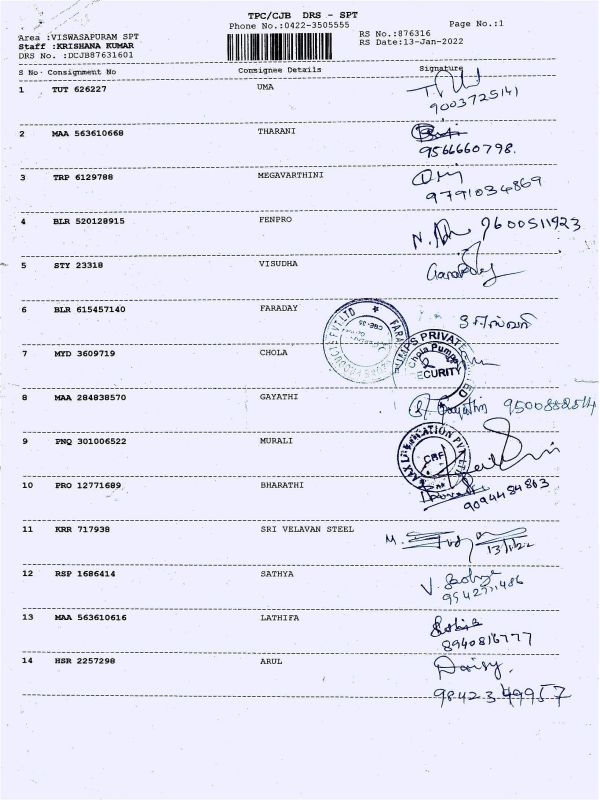 TPC/CJB DRS - SPT
Phone No.:0422-3505555 Page No.:1
Area :VISWASAPURAM SPT RS No.:876316
Staff :KRISHANA KUMAR RS Date:13-Jan-2022
DRS No. :DCJB87631601
S No Consignment No Consignee Details Signature
1 TUT 626227 UMA
9003725141
2 MAA 563610668 THARANI
9566660798.
3 TRP 6129788 MEGAVARTHINI
9791034869
4 BLR 520128915 FENPRO 9600511923
5 STY 23318 VISUDHA
6 BLR 615457140 FARADAY
7 MYD 3609719 CHOLA
Chola Pumps
SECURITY
8 MAA 284838570 GAYATHI Gayathri
9 PNQ 301006522 MURALI
CBF
10 PRO 12771689 BHARATHI
9094484803
11 KRR 717938 SRI VELAVAN STEEL M.
13/1/22
12 RSP 1686414 SATHYA
V.
13 MAA 563610616 LATHIFA
8940816777
14 HSR 2257298 ARUL Daisy.
9842349957